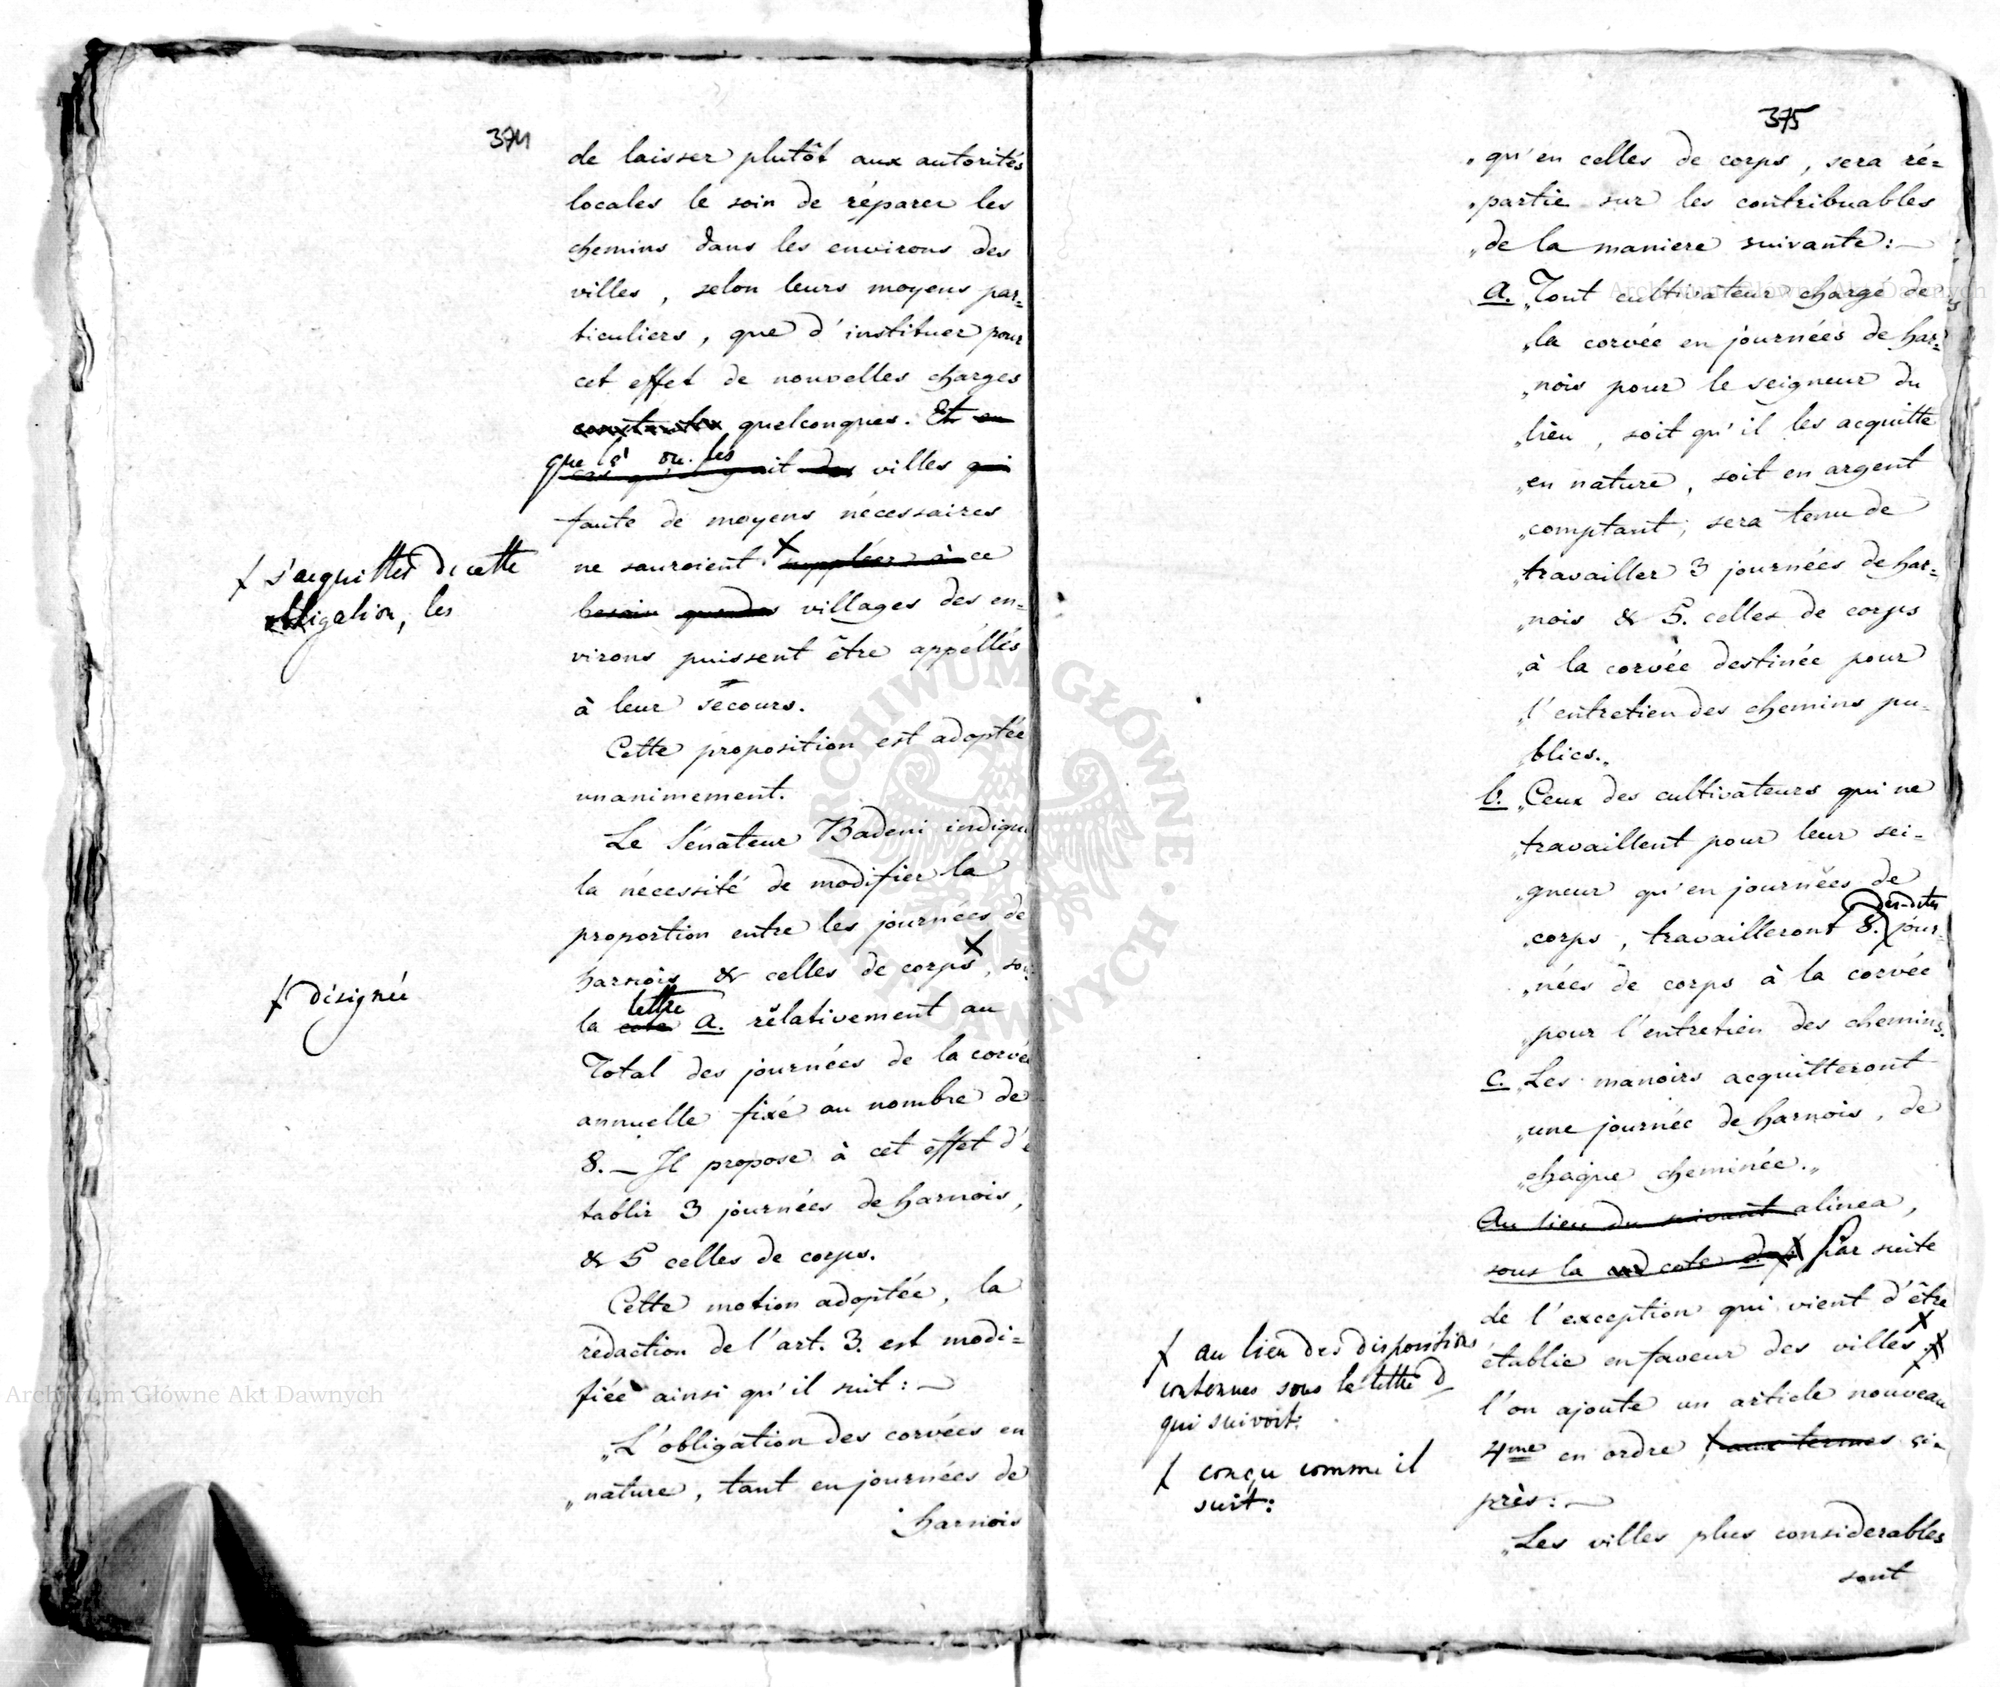 374
de laisser plutôt aux autorités
locales le soin de réparer les
chemins dans les environs des
villes, selon leurs moyens par=
ticuliers, que d'instituer pour
cet effet de nouvelles charges
quelconques. Et au
que là ou les
cas qu'il y ait des villes qui
faute de moyens nécessaires
ne sauroient + suppléer à ce
+ s'acquitter de cette
obligation, les
besoin que des villages des en=
virons puissent être appellés
à leur secours.
Cette proposition est adoptée
unanimement.
Le Sénateur Badeni indique
la nécessité de modifier la
proportion entre les journées de
harnois & celles de corps +, sous
+ désignée
lettre
la cote a. rélativement au
Total des journées de la corvée
annuelle fixé au nombre de
8. — Il propose à cet effet d'é
tablir 3 journées de harnois,
& 5 celles de corps.
Cette motion adoptée, la
rédaction de l'art. 3. est modi=
fiée ainsi qu'il suit: —
„L'obligation des corvées en
„nature, tant en journées de
harnois
375
„qu'en celles de corps, sera ré=
„partie sur les contribuables
„de la maniere suivante: —
a. „Tout cultivateur chargé de
„la corvée en journées de har=
„nois pour le seigneur du
„lieu, soit qu'il les acquitte
„en nature, soit en argent
„comptant, sera tenu de
„travailler 3 journées de har=
„nois & 5. celles de corps
„à la corvée destinée pour
„l'entretien des chemins pu=
blics.„
b. „Ceux des cultivateurs qui ne
„travaillent pour leur sei=
„gneur qu'en journées de
des-dites
„corps, travailleront 8. jour=
„nées de corps à la corvée
„pour l'entretien des chemins.
c. „Les manoirs acquitteront
„une journée de harnois, de
„chaque cheminée.„
Au lieu du suivant alinea,
sous la cote d. + Par suite
de l'exception qui vient d'être
établie en faveur des villes +
+ au lieu des dispositions
contenues sous la lettre d
qui suivoit:
l'on ajoute un article nouveau
4me en ordre + aux termes ci=
+ conçu comme il
suit:
près: —
„Les villes plus considerables
sont
Archiwum Główne Akt Dawnych
Archiwum Główne Akt Dawnych
ARCHIWUM GŁÓWNE AKT DAWNYCH